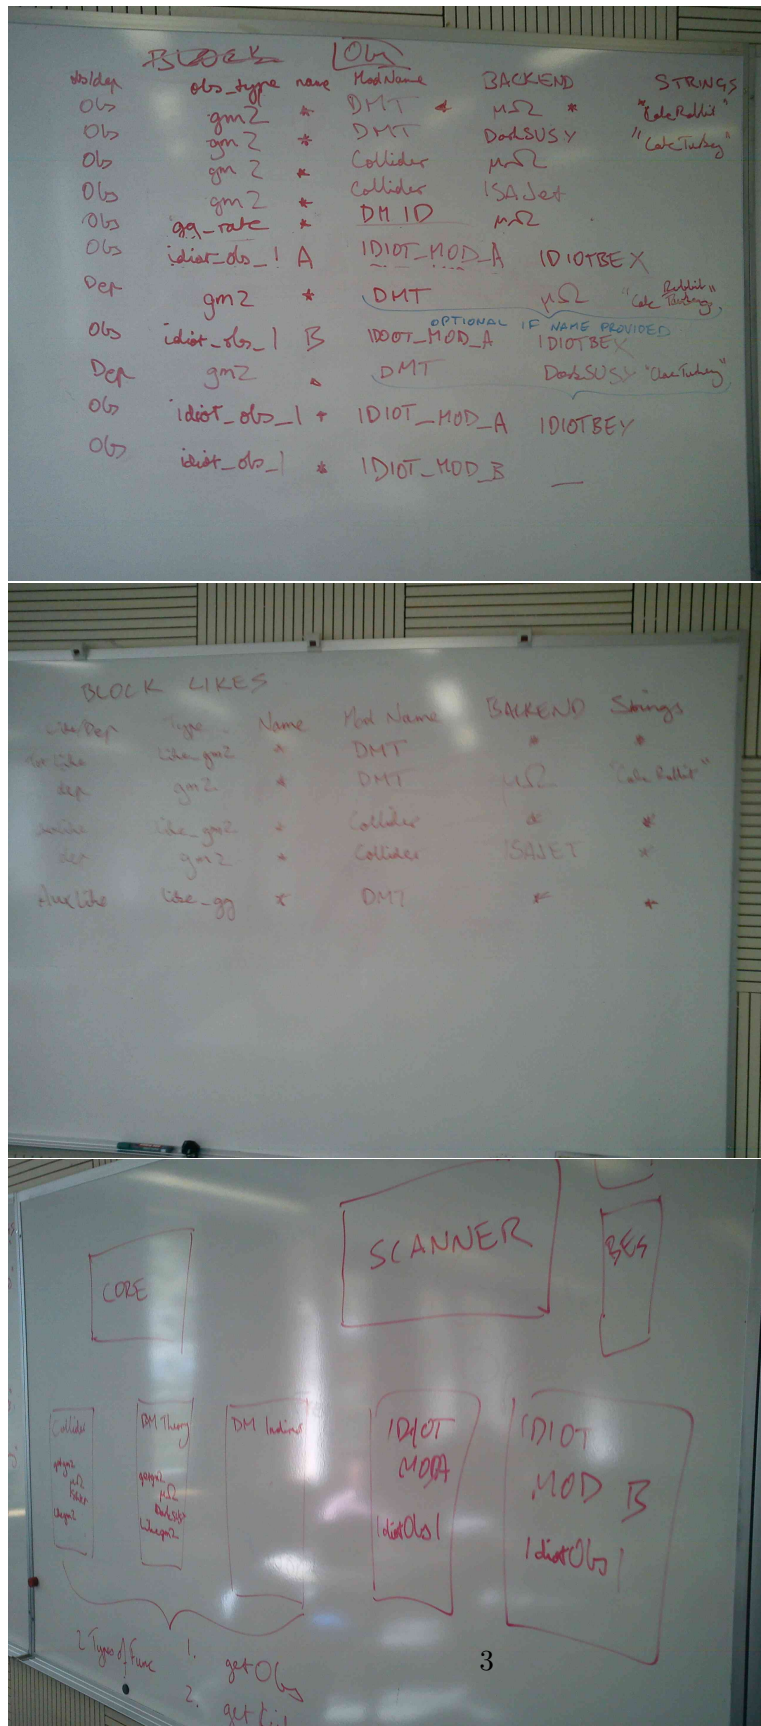 BLOCK Obs
obs/dep obs_type name ModName BACKEND STRINGS
Obs gm2 * DMT * μΩ * "CalcRabbit"
Obs gm2 * DMT DarkSUSY "CalcTurkey"
Obs gm2 * Collider μΩ
Obs gm2 * Collider ISAJet
Obs gg_rate * DMID μΩ
Obs idiot_obs_1 A IDIOT_MOD_A IDIOTBEX
Dep gm2 * DMT μΩ "Calc Rabbit"
OPTIONAL IF NAME PROVIDED
Obs idiot_obs_1 B IDOOT_MOD_A IDIOTBEX
Dep gm2 DMT DarkSUSY
Obs idiot_obs_1 * IDIOT_MOD_A IDIOTBEY
Obs idiot_obs_1 * IDIOT_MOD_B —
BLOCK LIKES
Like/Dep Type Name Mod Name BACKEND Strings
like_gm2 * DMT * *
dep gm2 * DMT μΩ "Calc Rabbit"
like_gm2 * Collider * *
dep gm2 * Collider ISAJET *
AuxLike like_gg * DMT * *
SCANNER
BES
CORE
Collider
μΩ
DM Theory
μΩ
DarkSUSY
Likegm2
DM Indirect
IDIOT
MODA
IdiotObs1
IDIOT
MOD B
IdiotObs1
2 Types of Func
1. getObs
2.
3